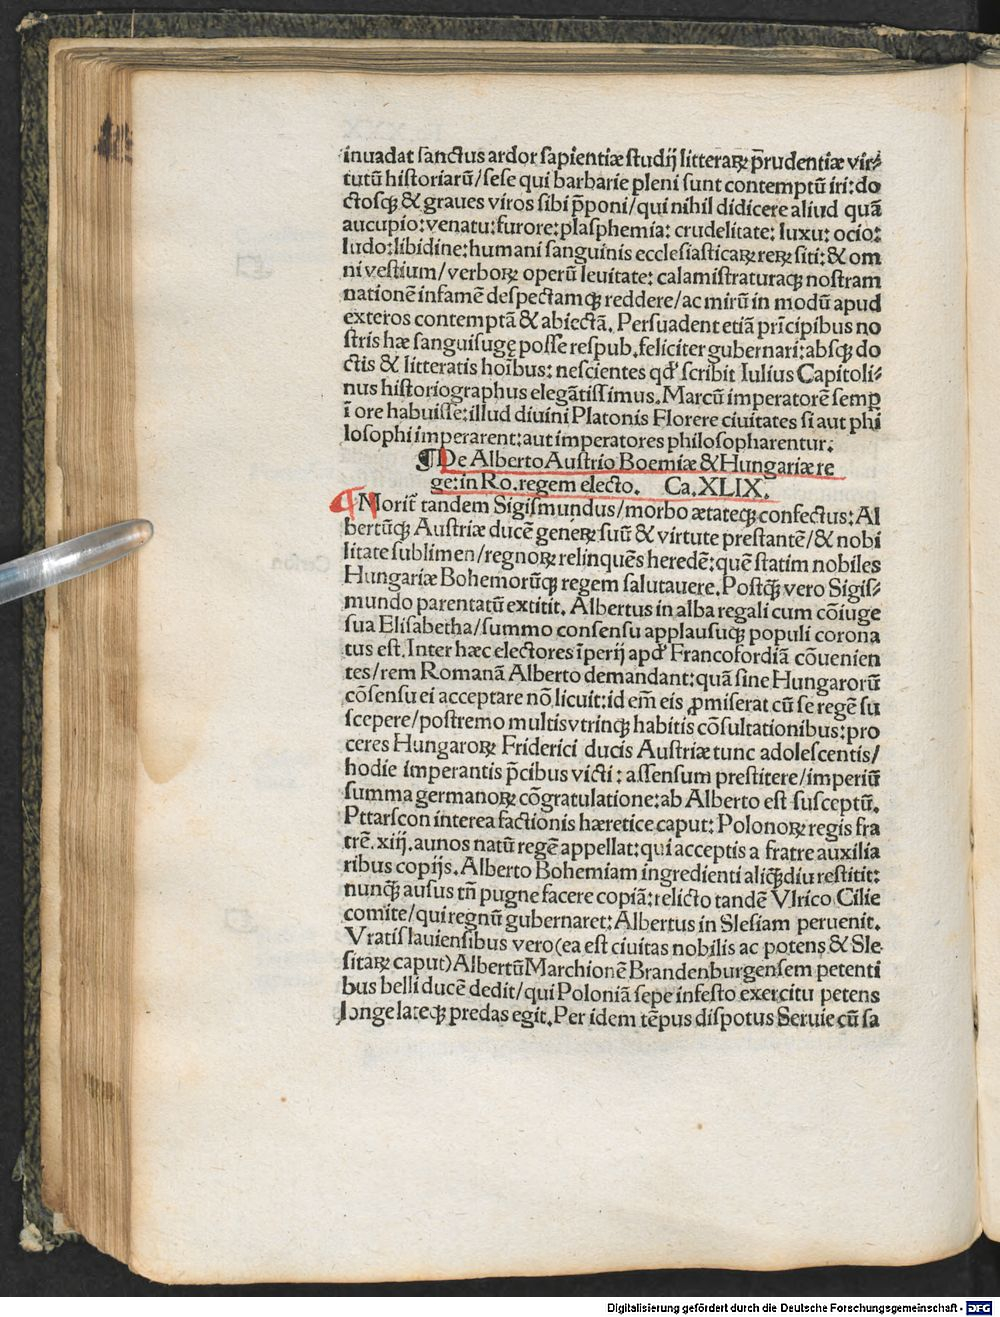 inuadat ſanctus ardor ſapientiæ ſtudij litteraꝝ p̄rudentiæ vir⸗
tutū hiſtoriarū/ſeſe qui barbarie pleni ſunt contemptū iri:do
ctoſqꝫ & graues viros ſibi p̄poni/qui nihil didicere aliud quā
aucupio:venatu:furore:plaſphemia: crudelitate: luxu: ocio:
ludo:libidine:humani ſanguinis eccleſiaſticaꝝ reꝝ ſiti:& om
ni veſtium/verboꝝ operū leuitate: calamiſtraturaqꝫ noſtram
nationē infamē deſpectamqꝫ reddere/ac mirū in modū apud
exteros contemptā & abiectā. Perſuadent etiā prīcipibus no
ſtris hæ ſanguiſugę poſſe reſpub.feliciter gubernari:abſqꝫ do
ctis & litteratis hoībus: neſcientes qd' ſcribit Iulius Capitoli⸗
nus hiſtoriographus elegātiſſimus.Marcū imperatorē ſemꝑ
ī ore habuiſſe:illud diuini Platonis Florere ciuitates ſi aut phi
loſophi imperarent:aut imperatores philoſopharentur.
¶De Alberto Auſtrio Boemiæ & Hungariæ re
ge:in Ro.regem electo. Ca.XLIX.
¶Morit̄ tandem Sigiſmundus/morbo ætateqꝫ confectus:Al
bertūqꝫ Auſtriæ ducē geneꝝ ſuū & virtute preſtantē/& nobi
litate ſublimen/regnoꝝ relinquēs heredē:quē ſtatim nobiles
Hungariæ Bohemorūqꝫ regem ſalutauere.Poſtqꝫ̄ vero Sigiſ⸗
mundo parentatū extitit. Albertus in alba regali cum cōiuge
ſua Eliſabetha/ſummo conſenſu applauſuqꝫ populi corona
tus eſt.Inter hæc electores īperij apd' Francofordiā cōuenien
tes/rem Romanā Alberto demandant:quā ſine Hungarorū
cōſenſu ei acceptare nō licuit:id em̄ eis ꝓmiſerat cū ſe regē ſu
ſcepere/poſtremo multis vtrinqꝫ habitis cōſultationibus:pro
ceres Hungaroꝝ Friderici ducis Auſtriæ tunc adoleſcentis/
hodie imperantis p̄cibus victi: aſſenſum preſtitere/imperiū
ſumma germanoꝝ cōgratulatione:ab Alberto eſt ſuſceptū.
Pttarſcon interea factionis hæretice caput: Polonoꝝ regis fra
trē.xiij.aunos natū regē appellat:qui acceptis a fratre auxilia
ribus copijs.Alberto Bohemiam ingredienti aliqꝫ̄diu reſtitit:
nunqꝫ̄ auſus tn̄ pugne facere copiā:relicto tandē Vlrico Cilie
comite/qui regnū gubernaret:Albertus in Sleſiam peruenit.
Vratiſlauienſibus vero(ea eſt ciuitas nobilis ac potens & Sle
ſitaꝝ caput)Albertū Marchionē Brandenburgenſem petenti
bus belli ducē dedit/qui Poloniā ſepe infeſto exercitu petens
longe lateqꝫ predas egit.Per idem tēpus diſpotus Seruie cū ſa
Digitalisierung gefördert durch die Deutsche Forschungsgemeinschaft - DFG